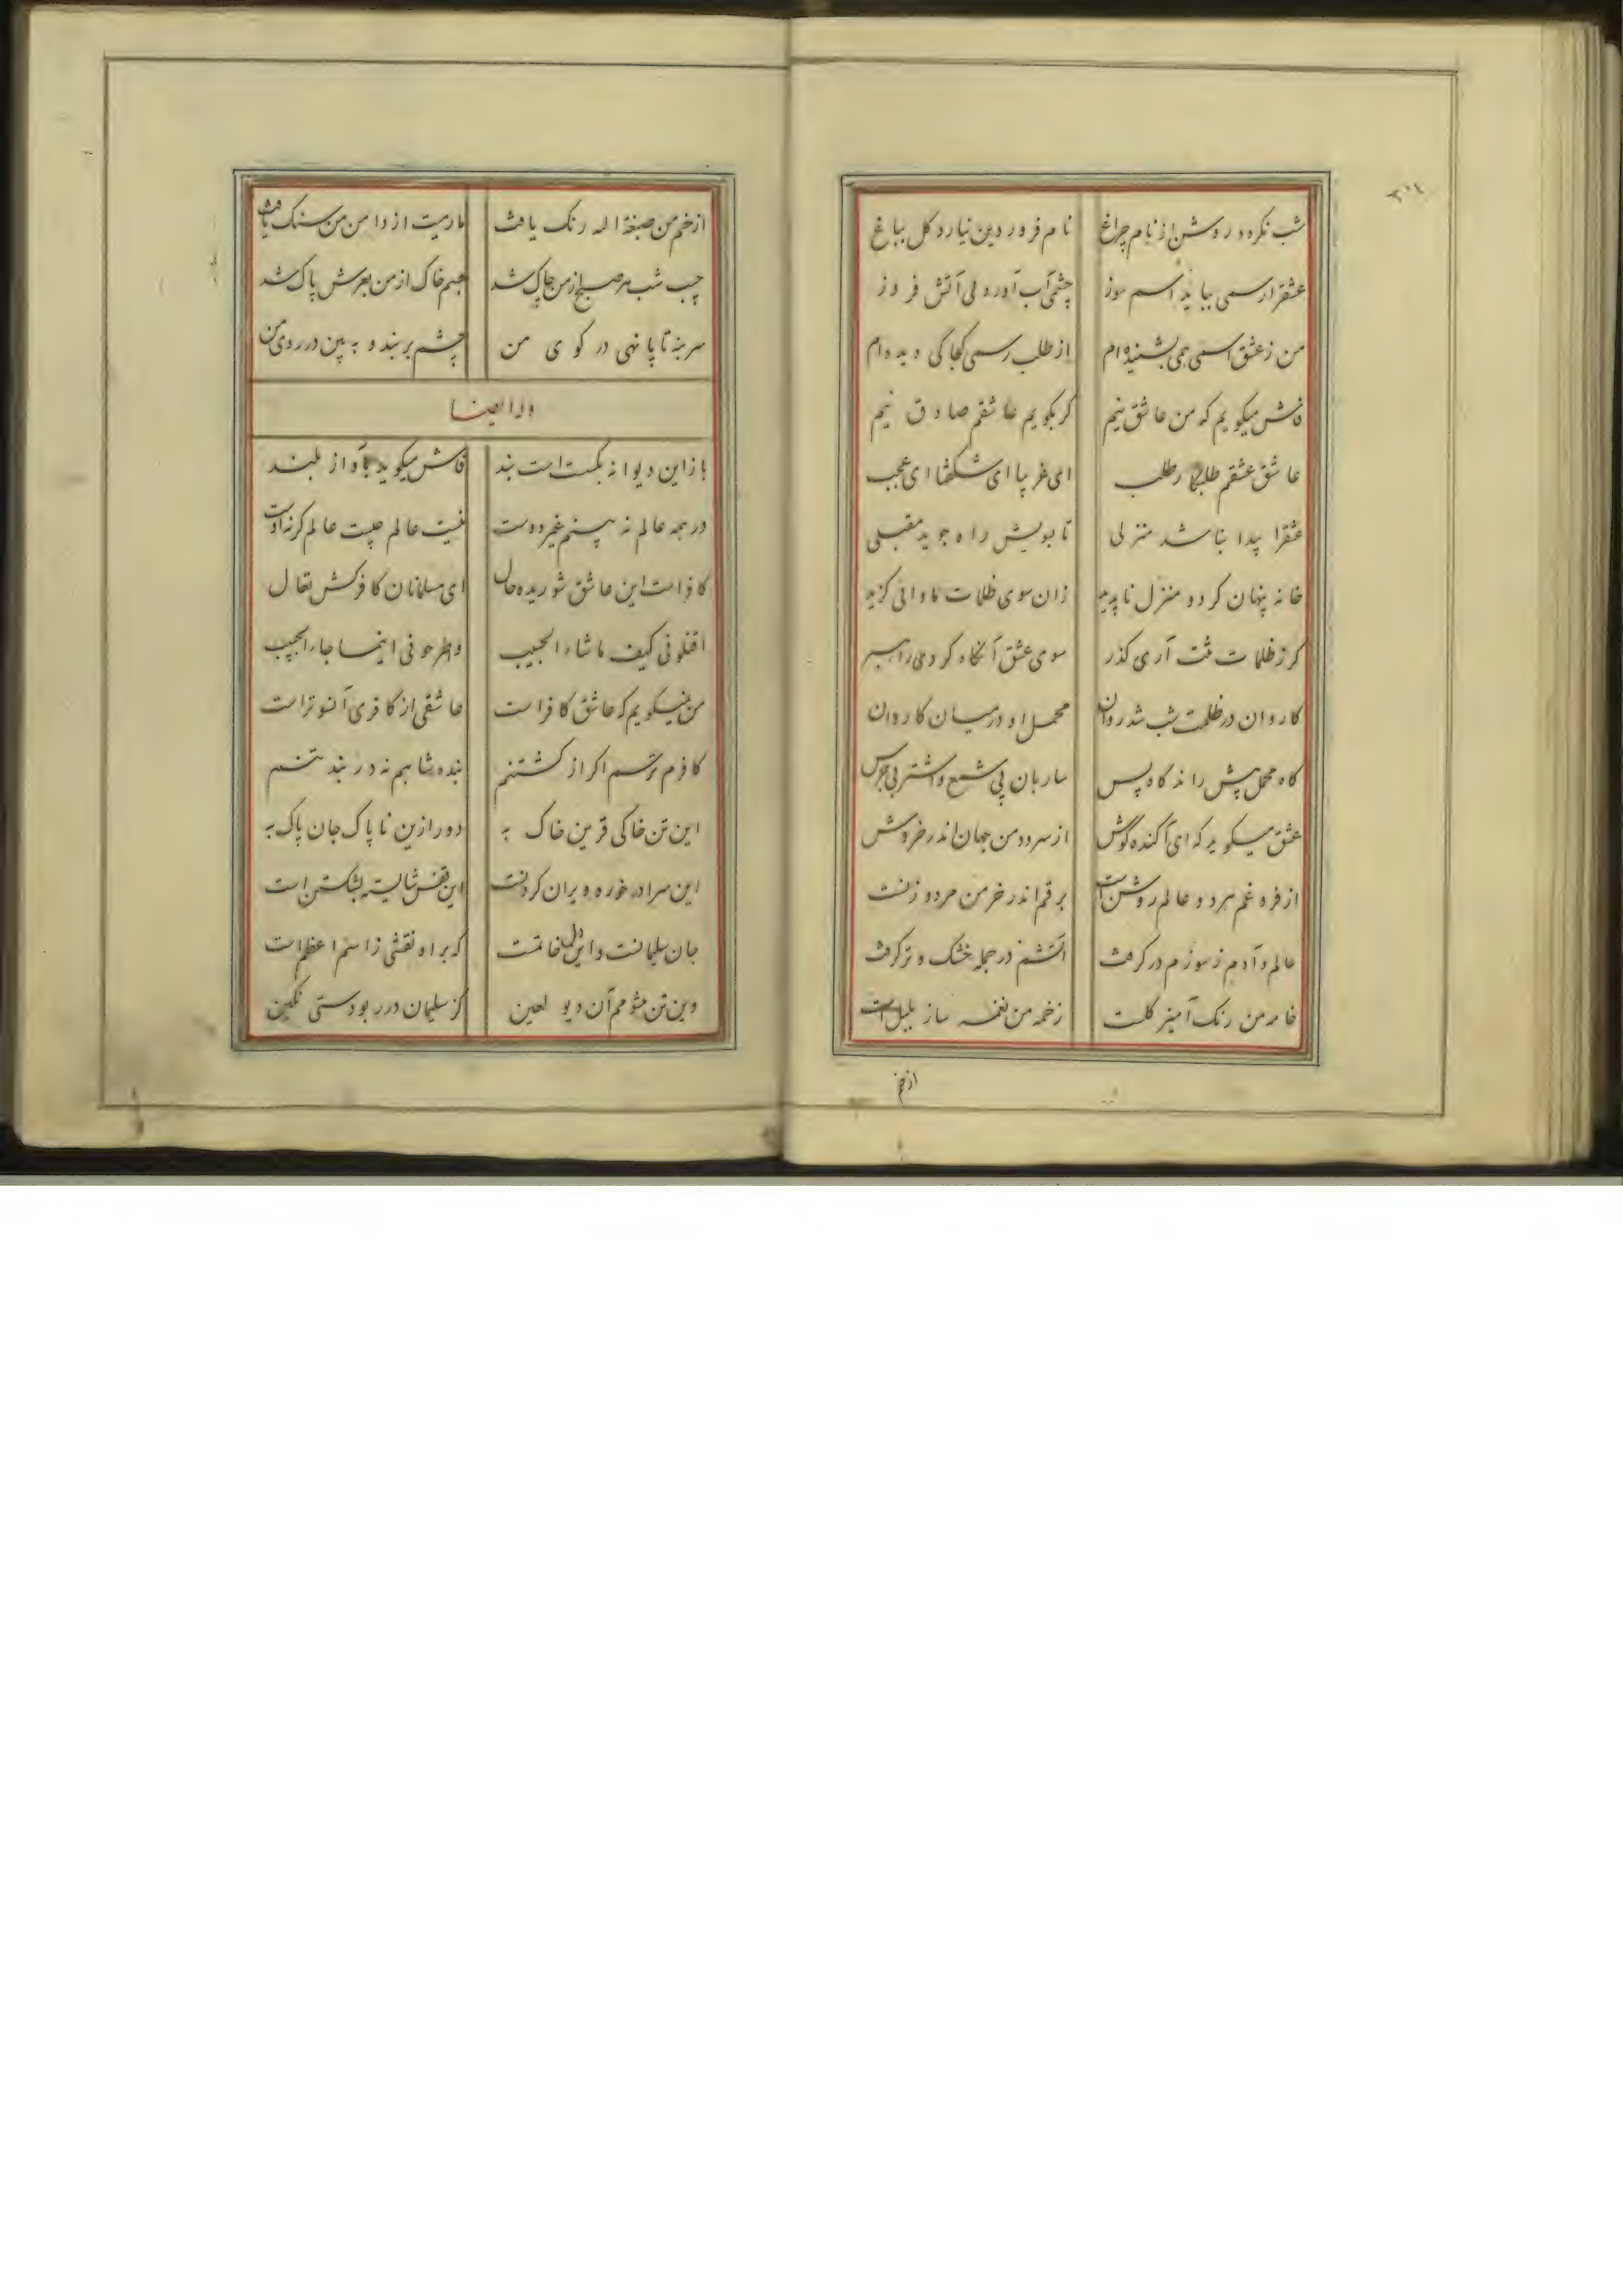 شب نکردد روشن از نام چراغ نام فروردین نیارد کل بباغ
عشقرا رسمی بباید اسم سوز چشمی آب آور دلی آتش فروز
من ز عشق اسمی همی بشنیده ام از طلب رسمی کجا کی دیده ام
فاش میکویم که من عاشق نیم کر بکویم عاشقم صادق نیم
عاشق عشقم طلبکار طلب ای غریبا ای شکفتا ای عجب
عشقرا پیدا نباشد منزلی تا بویش راه جوید مقبلی
خانه پنهان کرد و منزل ناپدید زان سوی ظلمات ماوائی کزید
کر ز ظلمات فنت آری کذر سوی عشق آنکاه کردی راهبر
کاروان در ظلمت شب شد روان محمل او در میان کاروان
کاه محمل پیش راند کاه پس ساربان بی شمع و اشتر بی جرس
عشق میکوید که ای آکنده کوش از سرود من جهان اندر خروش
از فروغم هر دو عالم روشن است برقم اندر خرمن مرد و زنست
عالم و آدم ز سوزم در کرفت آتشم در جمله خشک و تر کرفت
خامه من رنک آمیز کلست زخمه من نغمه ساز بلبل است
از خم
از خم من صبغة اله رنک یافت مارمیت از دامن من سنک یافت
جیب شب هر صبح از من چاک شد جسم خاک از من بعرش پاک شد
سر بنه تا پا نهی در کوی من چشم بربند و به بین در روی من
وله ایضا
باز این دیوانه بکسست است بند فاش میکوید بآواز بلند
در همه عالم نه بینم غیر دوست نیست عالم چیست عالم کرنه اوست
کافر است این عاشق شوریده حال ای مسلمانان کافرکش تعال
اقتلونی کیف ما شاء الحبیب واطرحونی اینما جاء الحبیب
من نمیکویم که عاشق کافر است عاشقی از کافری آنسوتر است
کافرم ترسم اکر از کشتنم بنده شاهم نه در بند تنم
این تن خاکی قرین خاک به دور ازین ناپاک جان پاک به
این سرا در خورده ویران کردنست این قفس شایسته بشکستن است
جان سلیمانست و این دل خاتمت که براو نقشی ز اسم اعظم است
وین تن مشومم آن دیو لعین کز سلیمان در ربودستی نکین